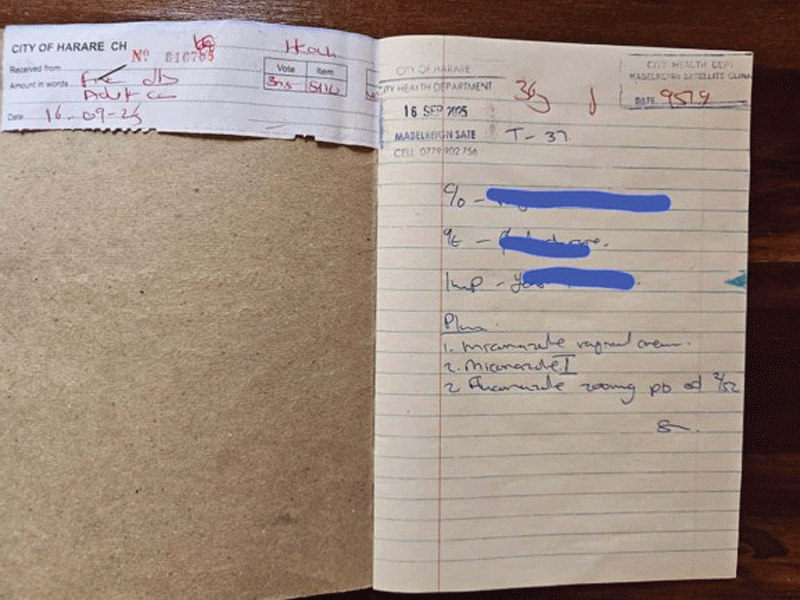 CITY OF HARARE CH
Nº 816795
Received from
Amount in words
Adult
Date 16-09-25
Vote Item
CITY OF HARARE
CITY HEALTH DEPARTMENT
16 SEP 2025
MABELREIGN SATE
CELL 0779 902 756
CITY HEALTH DEPT
MABELREIGN SATELLITE CLINIC
DATE 9579
T - 37
c/o -
o/e -
Imp -
Plan
1. Miconazole vaginal cream.
2. Miconazole I
2 Fluconazole 200mg po od 2/52